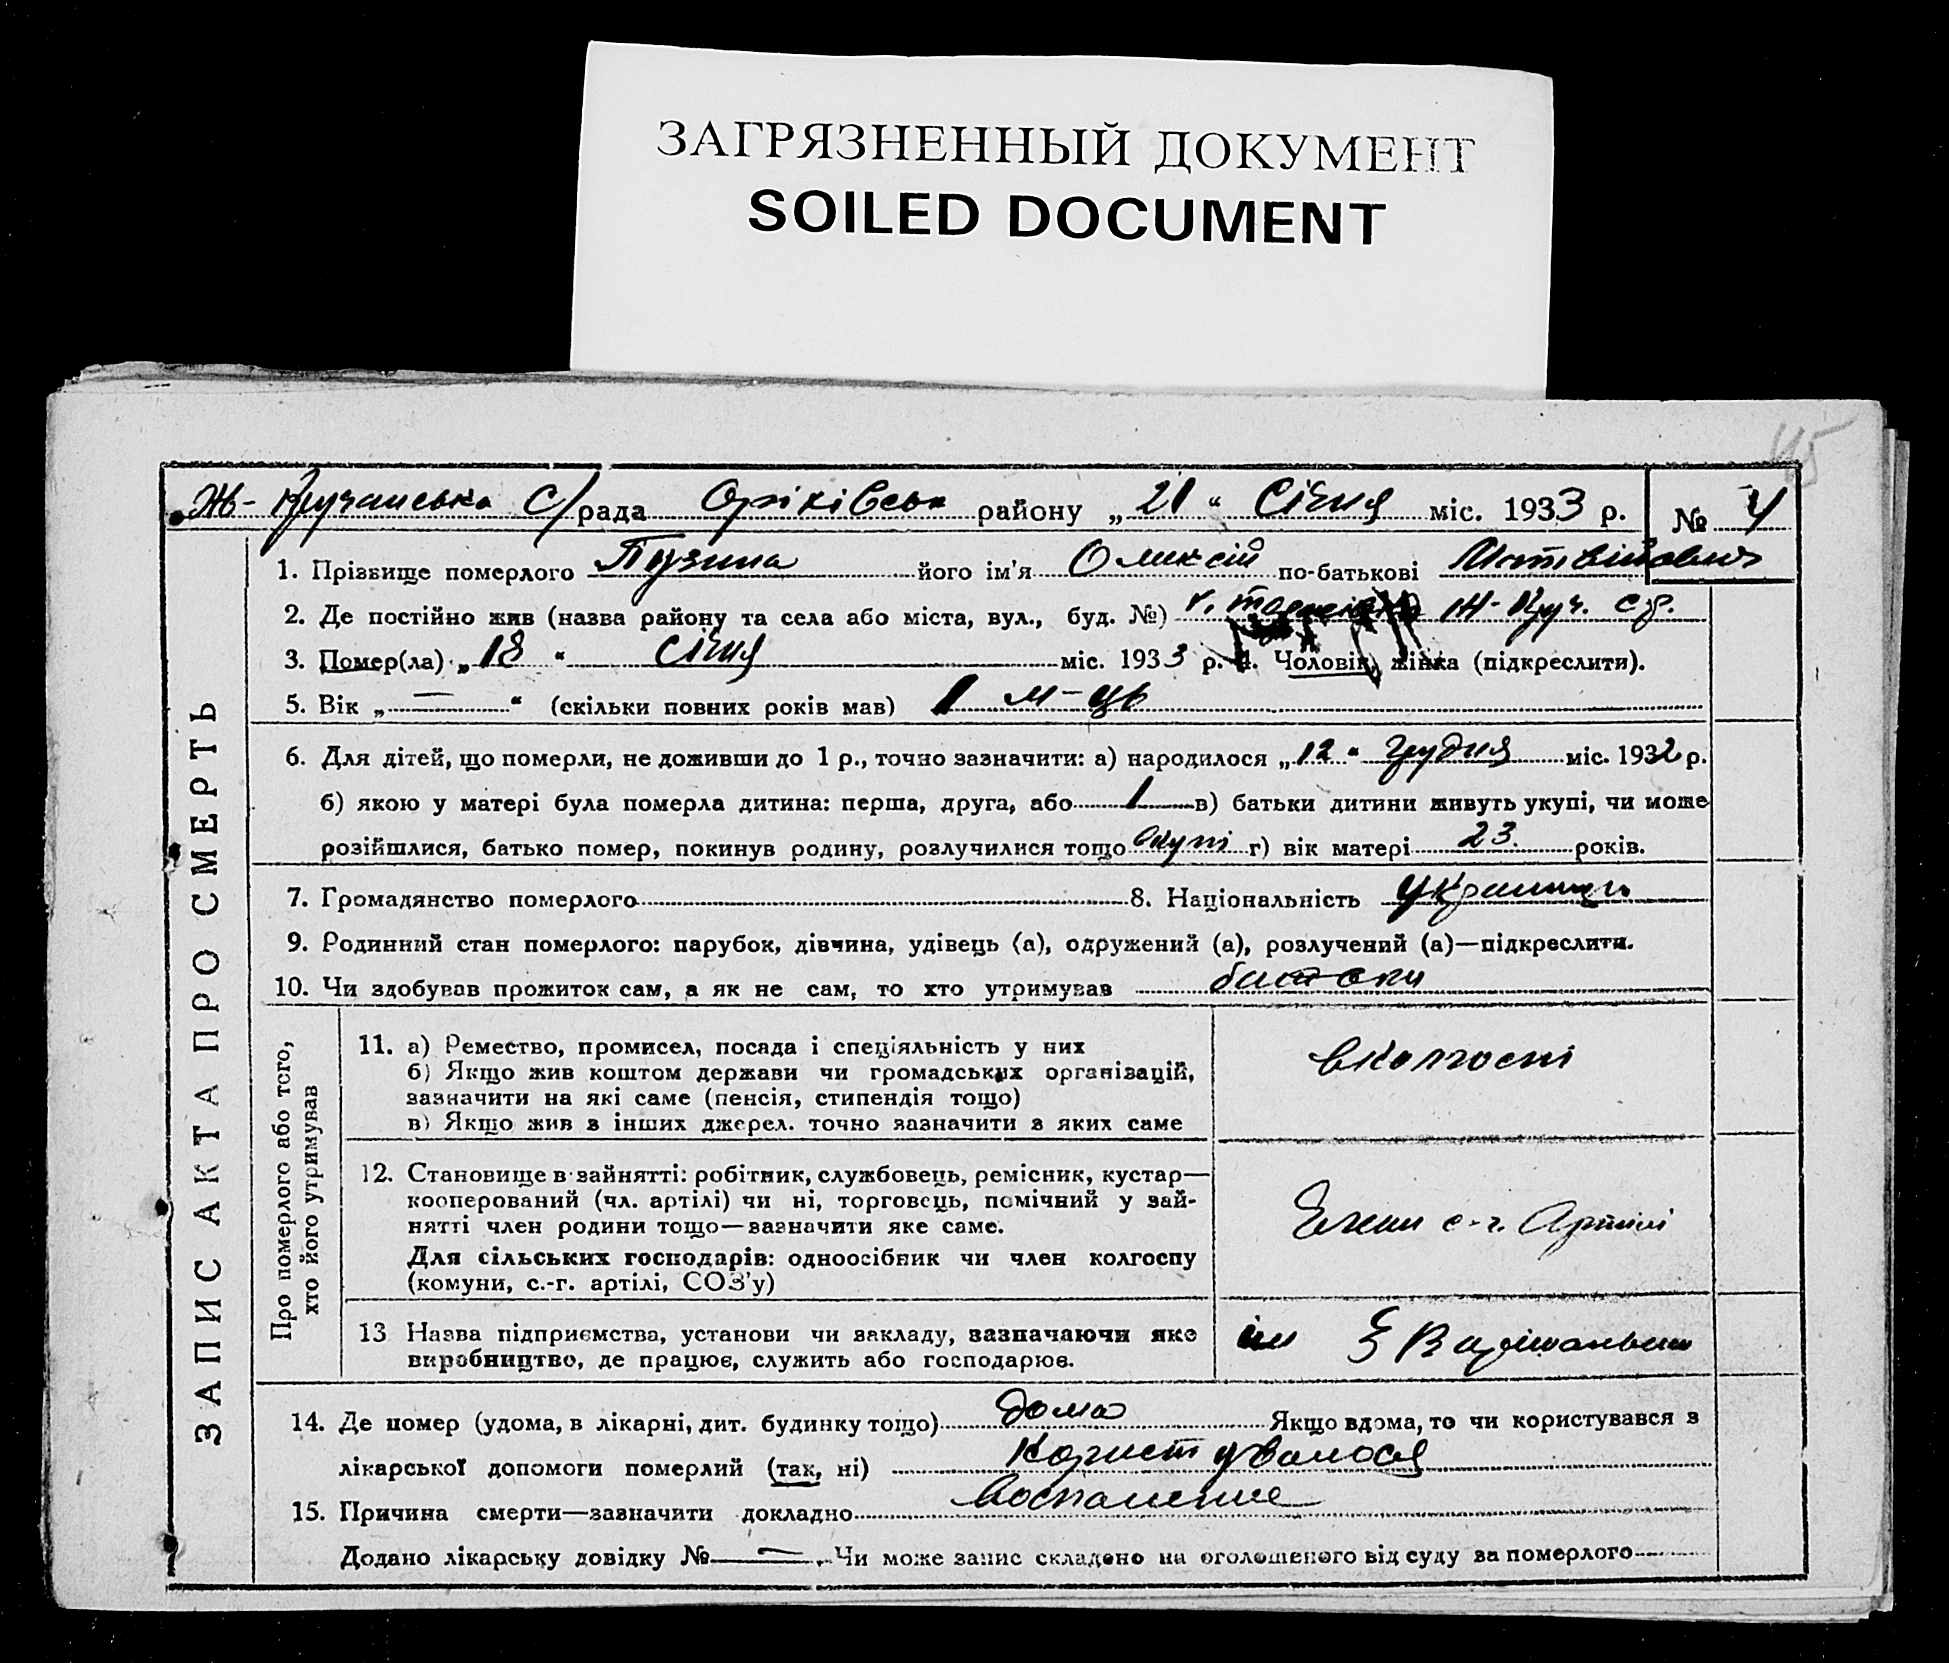 ЗАГРЯЗНЕННЫЙ ДОКУМЕНТ
SOILED DOCUMENT
45
Ж-Кручанська С/рада Оріхівськ району „21“ Січня міс. 1933 р. № 4
1. Прізвище померлого Пузина його ім'я Олексій по-батькові Матвійович
2. Де постійно жив (назва району та села або міста, вул., буд. №) Ж-Круч. с.р.
3. Помер(ла) „18“ січня міс. 1933 р. 4. Чоловік, жінка (підкреслити).
5. Вік „—“ (скільки повних років мав) 1 м-ць
6. Для дітей, що померли, не доживши до 1 р., точно зазначити: а) народилося „12“ грудня міс. 1932 р.
б) якою у матері була померла дитина: перша, друга, або 1 в) батьки дитини живуть укупі, чи може
розійшлися, батько помер, покинув родину, розлучилися тощо вкупі г) вік матері 23. років.
7. Громадянство померлого 8. Національність
9. Родинний стан померлого: парубок, дівчина, удівець (а), одружений (а), розлучений (а)—підкреслити.
10. Чи здобував прожиток сам, а як не сам, то хто утримував батьки
ЗАПИС АКТА ПРО СМЕРТЬ
Про померлого або того,
хто його утримував
11. а) Ремество, промисел, посада і спеціяльність у них
б) Якщо жив коштом держави чи громадських організацій,
зазначити на які саме (пенсія, стипендія тощо)
в) Якщо жив з інших джерел. точно зазначити з яких саме
вколгоспі
12. Становище в зайнятті: робітник, службовець, ремісник, кустар—
кооперований (чл. артілі) чи ні, торговець, помічний у зай-
нятті член родини тощо—зазначити яке саме.
Для сільських господарів: одноосібник чи член колгоспу
(комуни, с.-г. артілі, СОЗ'у)
Член с-г. Артілі
13 Назва підприємства, установи чи закладу, зазначаючи яке
виробництво, де працює, служить або господарює.
ім
14. Де помер (удома, в лікарні, дит. будинку тощо) дома Якщо вдома, то чи користувався з
лікарської допомоги померлий (так, ні) користувалося
15. Причина смерти—зазначити докладно воспаление
Додано лікарську довідку № — . Чи може запис складено на оголошеного від суду за померлого